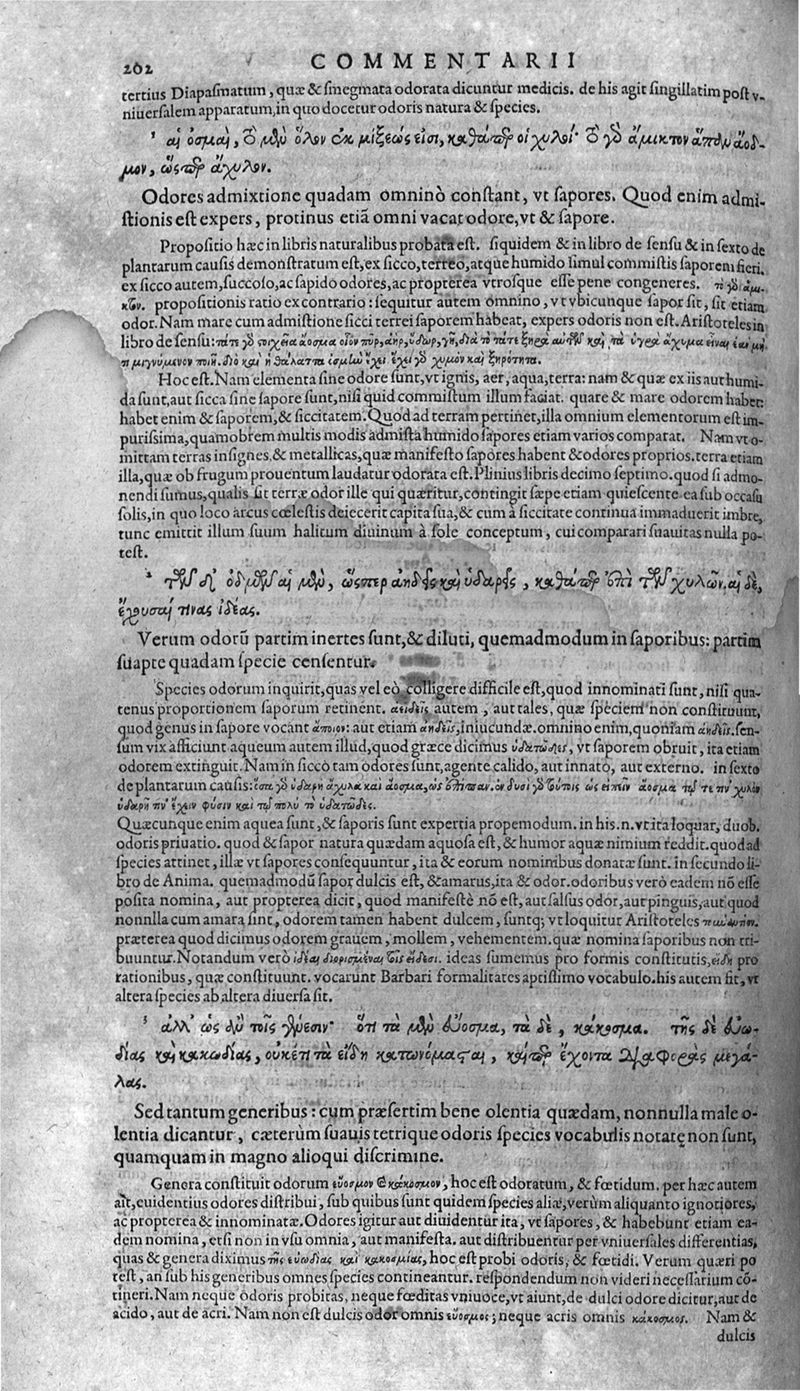 202 COMMENTARII
tertius Diapasmatum, quæ & smegmata odorata dicuntur medicis. de his agit singillatim post v-
niuersalem apparatum, in quo docetur odoris natura & species.
αἱ ὀσμαὶ, τὸ μὲν ὅλον ἐκ μίξεώς εἰσι, καθάπερ οἱ χυλοί· τὸ γὸ ἄμικτον ἅπαν ἄοδ-
μον, ὥσπερ ἄχυλον.
Odores admixtione quadam omninò constant, vt sapores. Quod enim admi-
stionis est expers, protinus etiã omni vacat odore, vt & sapore.
Propositio hæc in libris naturalibus probata est. siquidem & in libro de sensu & in sexto de
plantarum causis demonstratum est, ex sicco, terreo, atque humido simul commistis saporem fieri.
ex sicco autem, succoso, ac sapido odores, ac propterea vtrosque esse pene congeneres. τὸ γὸ ἄμι-
κτον. propositionis ratio ex contrario: sequitur autem omnino, vt vbicunque sapor sit, sit etiam
odor. Nam mare cum admistione sicci terrei saporem habeat, expers odoris non est. Aristoteles in
libro de sensu: τά τε γὸ στοιχεῖα ἄοσμα οἷον πῦρ, ἀὴρ, ὕδωρ, γῆ, διὰ τὸ τά τε ξηρὰ αὐτῶν καὶ τὰ ὑγρὰ ἄχυμα εἶναι ἐὰν μή
τι μιγνύμενον ποιῇ. διὸ καὶ ἡ θάλαττα ὀσμὴν ἔχει ἔχει γὸ χυμὸν καὶ ξηρότητα.
Hoc est. Nam elementa sine odore sunt, vt ignis, aer, aqua, terra: nam & quæ ex iis aut humi-
da sunt, aut sicca sine sapore sunt, nisi quid commistum illum faciat. quare & mare odorem habet:
habet enim & saporem, & siccitatem. Quod ad terram pertinet, illa omnium elementorum est im-
purissima, quamobrem multis modis admista humido sapores etiam varios comparat. Nam vt o-
mittam terras insignes, & metallicas, quæ manifesto sapores habent & odores proprios. terra etiam
illa, quæ ob frugum prouentum laudatur odorata est. Plinius libris decimo septimo. quod si admo-
nendi sumus, qualis sit terræ odor ille qui quæritur, contingit sæpe etiam quiescente ea sub occasu
solis, in quo loco arcus cœlestis deiecerit capita sua, & cum à siccitate continua immaduerit imbre,
tunc emittit illum suum halitum diuinum à sole conceptum, cui comparari suauitas nulla po-
test.
τῶν δὲ ὀδμῶν αἱ μὲν, ὥσπερ ἀηδεῖς καὶ ὑδαρεῖς, καθάπερ ἐπὶ τῶν χυλῶν. αἱ δὲ,
ἔχουσαί τινας ἰδέας.
Verum odorũ partim inertes sunt, & diluti, quemadmodum in saporibus: partim
suapte quadam specie censentur.
Species odorum inquirit, quas vel eò colligere difficile est, quod innominati sunt, nisi qua-
tenus proportionem saporum retinent. ἀειδεῖς autem, aut tales, quæ speciem non constituunt,
quod genus in sapore vocant ἄποιον: aut etiam ἀηδεῖς, iniucundæ. omnino enim, quoniam ἀηδεῖς. sen-
sum vix afficiunt aqueum autem illud, quod græce dicimus ὑδατῶδες, vt saporem obruit, ita etiam
odorem extinguit. Nam in sicco tam odores sunt, agente calido, aut innato, aut externo. in sexto
de plantarum causis: ὅσα γὸ ὑδαρῆ ἄχυλα καὶ ἄοσμα, ὡς
ὑδαρῆ τιν' ἔχειν φύσιν καὶ τῷ πολὺ τὸ ὑδατῶδες.
Quæcunque enim aquea sunt, & saporis sunt expertia propemodum. in his .n. vt ita loquar, duob.
odoris priuatio. quod & sapor natura quædam aquosa est, & humor aquæ nimium reddit. quod ad
species attinet, illæ vt sapores consequuntur, ita & eorum nominibus donatæ sunt. in secundo li-
bro de Anima. quemadmodũ sapor dulcis est, & amarus, ita & odor. odoribus verò eadem nõ esse
posita nomina, aut propterea dicit, quod manifestè nõ est, aut salsus odor, aut pinguis, aut quod
nonnulla cum amara sint, odorem tamen habent dulcem, suntq; vt loquitur Aristoteles
præterea quod dicimus odorem grauem, mollem, vehementem. quæ nomina saporibus non tri-
buuntur. Notandum verò ἰδέας διορισμένας τοῖς εἴδεσι. ideas sumemus pro formis constitutis, εἴδη pro
rationibus, quæ constituunt. vocarunt Barbari formalitates aptissimo vocabulo. his autem fit, vt
altera species ab altera diuersa sit.
ἀλλ' ὡς ἐν τοῖς γένεσιν· ὅτι τὰ μὲν εὔοσμα, τὰ δὲ, κάκοσμα. τῆς δὲ εὐω-
δίας καὶ κακωδίας, οὐκέτι τὰ εἴδη κατωνόμασται, καίπερ ἔχοντα διαφορὰς μεγά-
λας.
Sed tantum generibus: cum præsertim bene olentia quædam, nonnulla male o-
lentia dicantur, cæterùm suauis tetrique odoris species vocabulis notatę non sunt,
quamquam in magno alioqui discrimine.
Genera constituit odorum εὔοσμον & κάκοσμον, hoc est odoratum, & fœtidum. per hæc autem
ait, euidentius odores distribui, sub quibus sunt quidem species aliæ, verùm aliquanto ignotiores,
ac propterea & innominatæ. Odores igitur aut diuidentur ita, vt sapores, & habebunt etiam ea-
dem nomina, etsi non in vsu omnia, aut manifesta. aut distribuentur per vniuersales differentias,
quas & genera diximus τῆς εὐωδίας καὶ κακοσμίας, hoc est probi odoris, & fœtidi. Verum quæri po
test, an sub his generibus omnes species contineantur. respondendum non videri necessarium cõ-
tineri. Nam neque odoris probitas, neque fœditas vniuoce, vt aiunt, de dulci odore dicitur, aut de
acido, aut de acri. Nam non est dulcis odor omnis εὔοσμος; neque acris omnis κάκοσμος. Nam &
dulcis